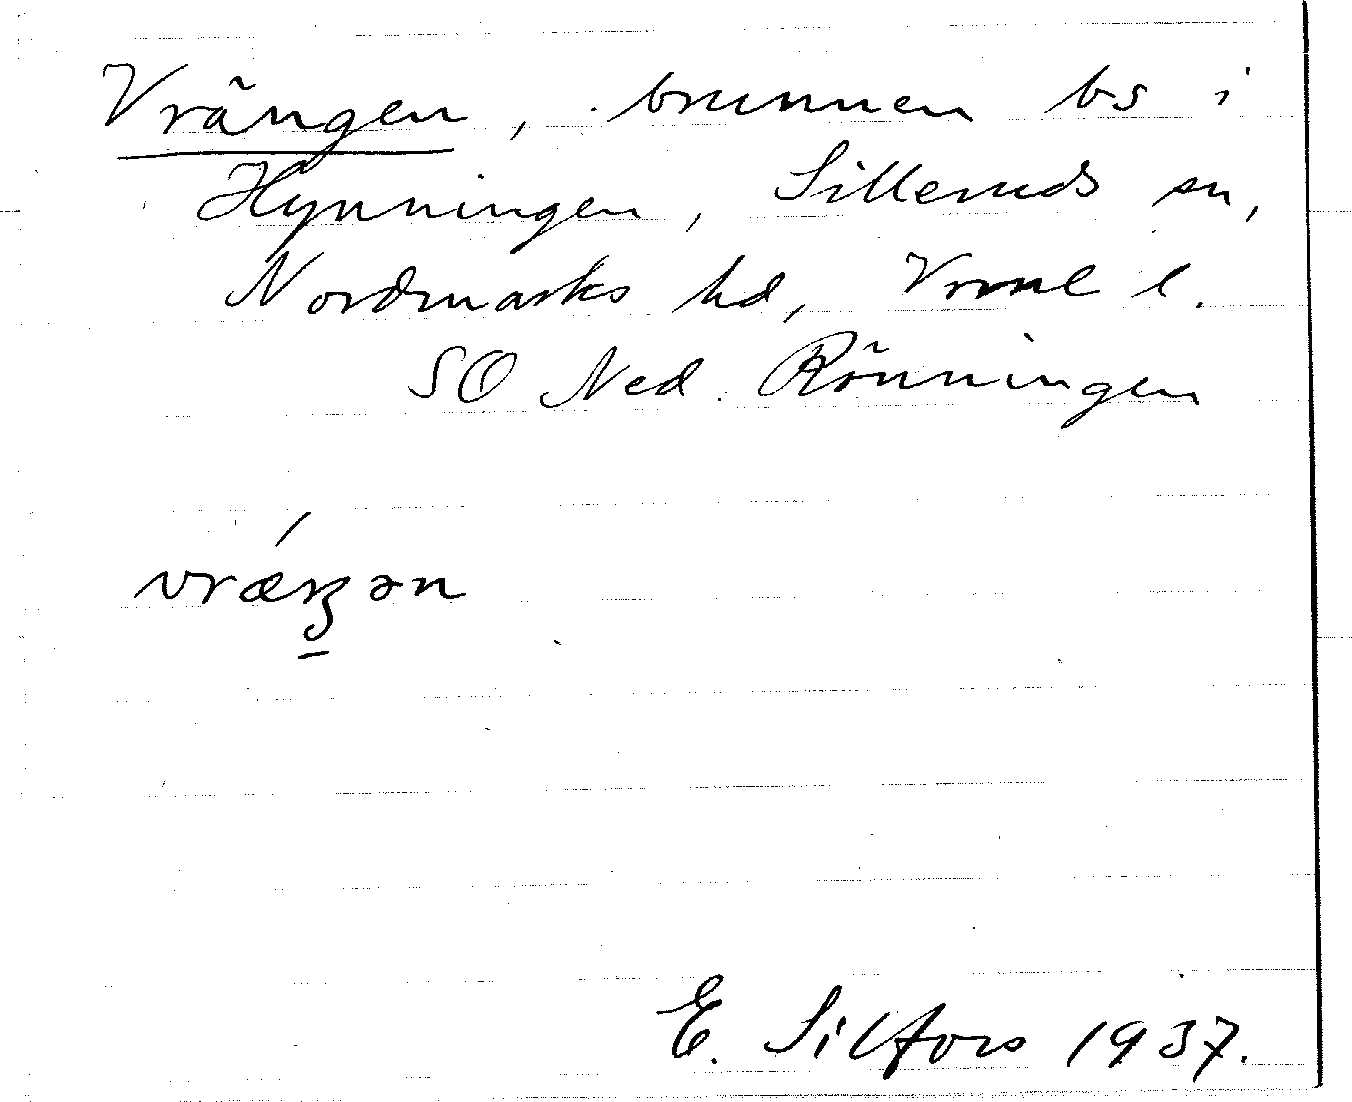 Vrängen, brunnen bs i
Hynningen, Silleruds sn,
Nordmarks hd, Vrml l.
SO Ned. Rönningen
vræ´ŋən
E. Silfors 1937.